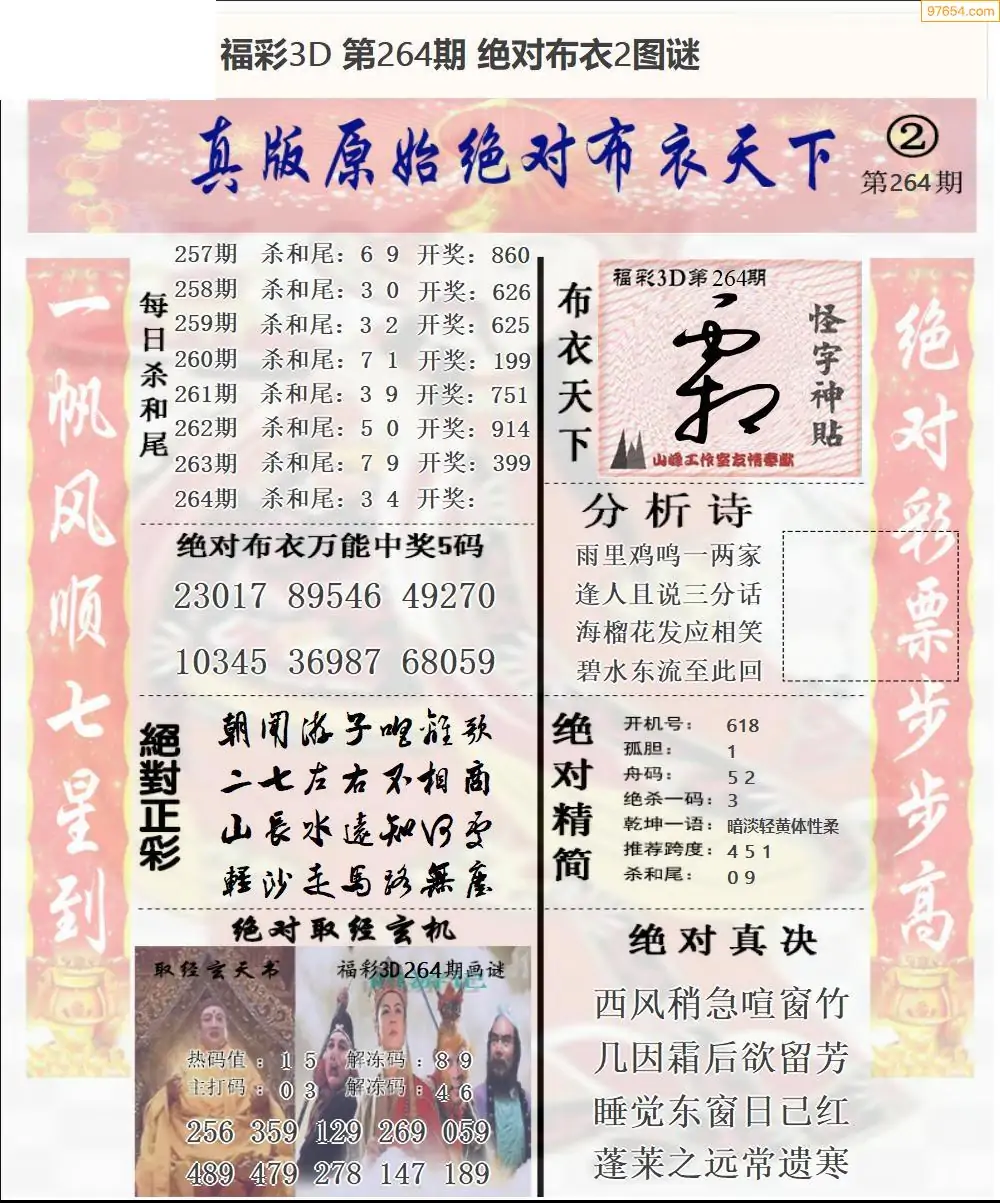 97654.com
福彩3D 第264期 绝对布衣2图谜
真版原始绝对布衣天下
②
第264期
一帆风顺七星到
每日杀和尾
257期 杀和尾：6 9 开奖：860
258期 杀和尾：3 0 开奖：626
259期 杀和尾：3 2 开奖：625
260期 杀和尾：7 1 开奖：199
261期 杀和尾：3 9 开奖：751
262期 杀和尾：5 0 开奖：914
263期 杀和尾：7 9 开奖：399
264期 杀和尾：3 4 开奖：
绝对布衣万能中奖5码
23017 89546 49270
10345 36987 68059
絕對正彩
朝闻游子唱離歌
二七左右不相商
山長水遠知何处
輕沙走馬路無塵
绝对取经玄机
取经玄天书
福彩3D264期画谜
热码值：1 5 解冻码：8 9
主打码：0 3 解冻码：4 6
256 359 129 269 059
489 479 278 147 189
布衣天下
福彩3D第264期
霜
怪字神贴
山峰工作室友情奉献
分析诗
雨里鸡鸣一两家
逢人且说三分话
海榴花发应相笑
碧水东流至此回
绝对精简
开机号： 618
孤胆： 1
舟码： 5 2
绝杀一码：3
乾坤一语：暗淡轻黄体性柔
推荐跨度：4 5 1
杀和尾： 0 9
绝对真决
西风稍急喧窗竹
几因霜后欲留芳
睡觉东窗日已红
蓬莱之远常遗寒
绝对彩票步步高